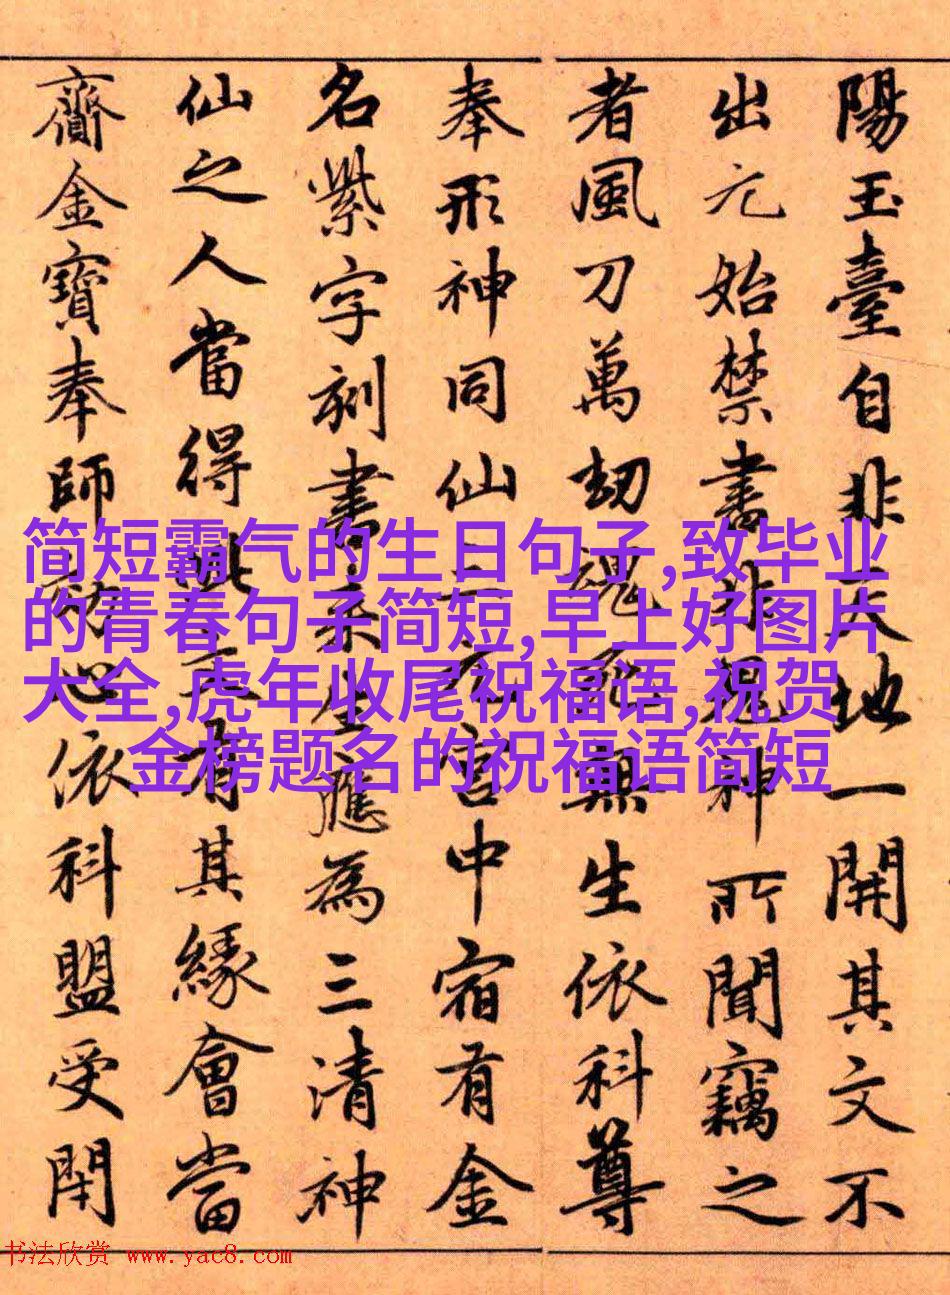 陽玉臺自非天地一開其文不
出元始禁書非鬼神所聞竊之
者風刀萬劫魂死無生依科尊
奉形神同仙三元宮中宿有金
名紫字刻書來生應為三清神
仙之人當得此文有其緣會當
齎金寶奉師効心依科盟受閇
简短霸气的生日句子,致毕业
的青春句子简短,早上好图片
大全,虎年收尾祝福语,祝贺
金榜题名的祝福语简短
书法欣赏 www.yac8.com